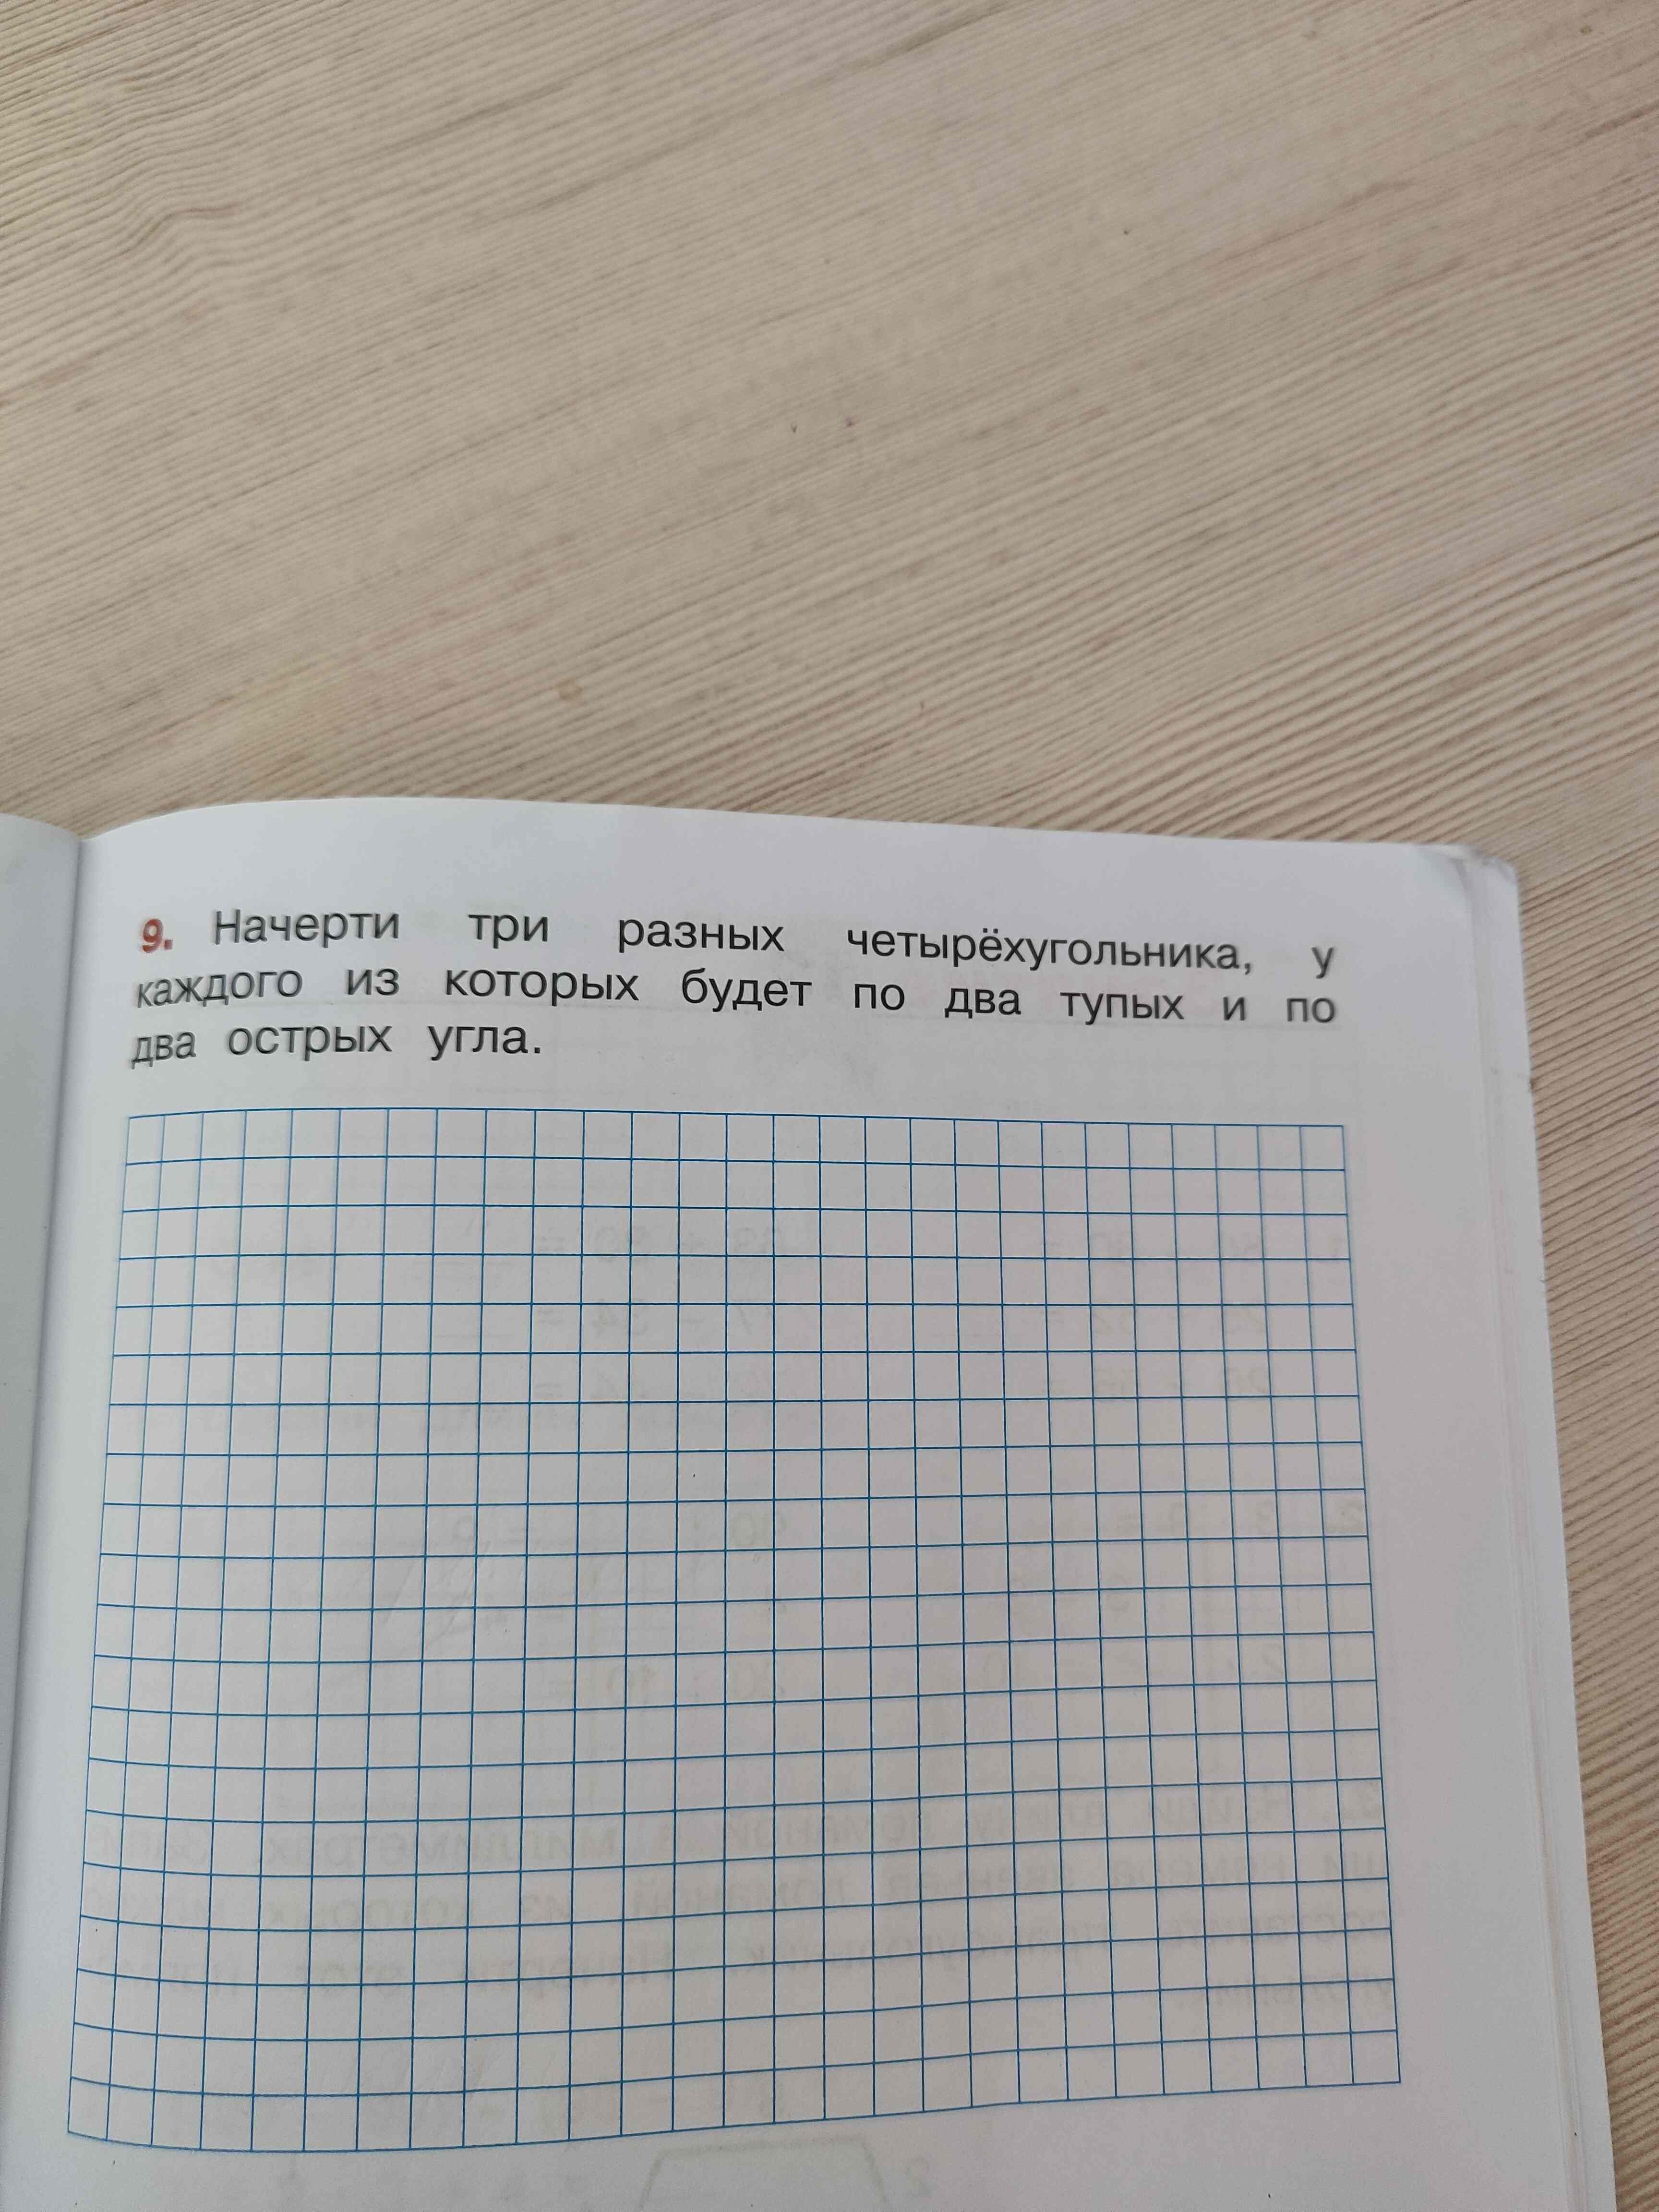 9. Начерти три разных четырёхугольника, у
каждого из которых будет по два тупых и по
два острых угла.